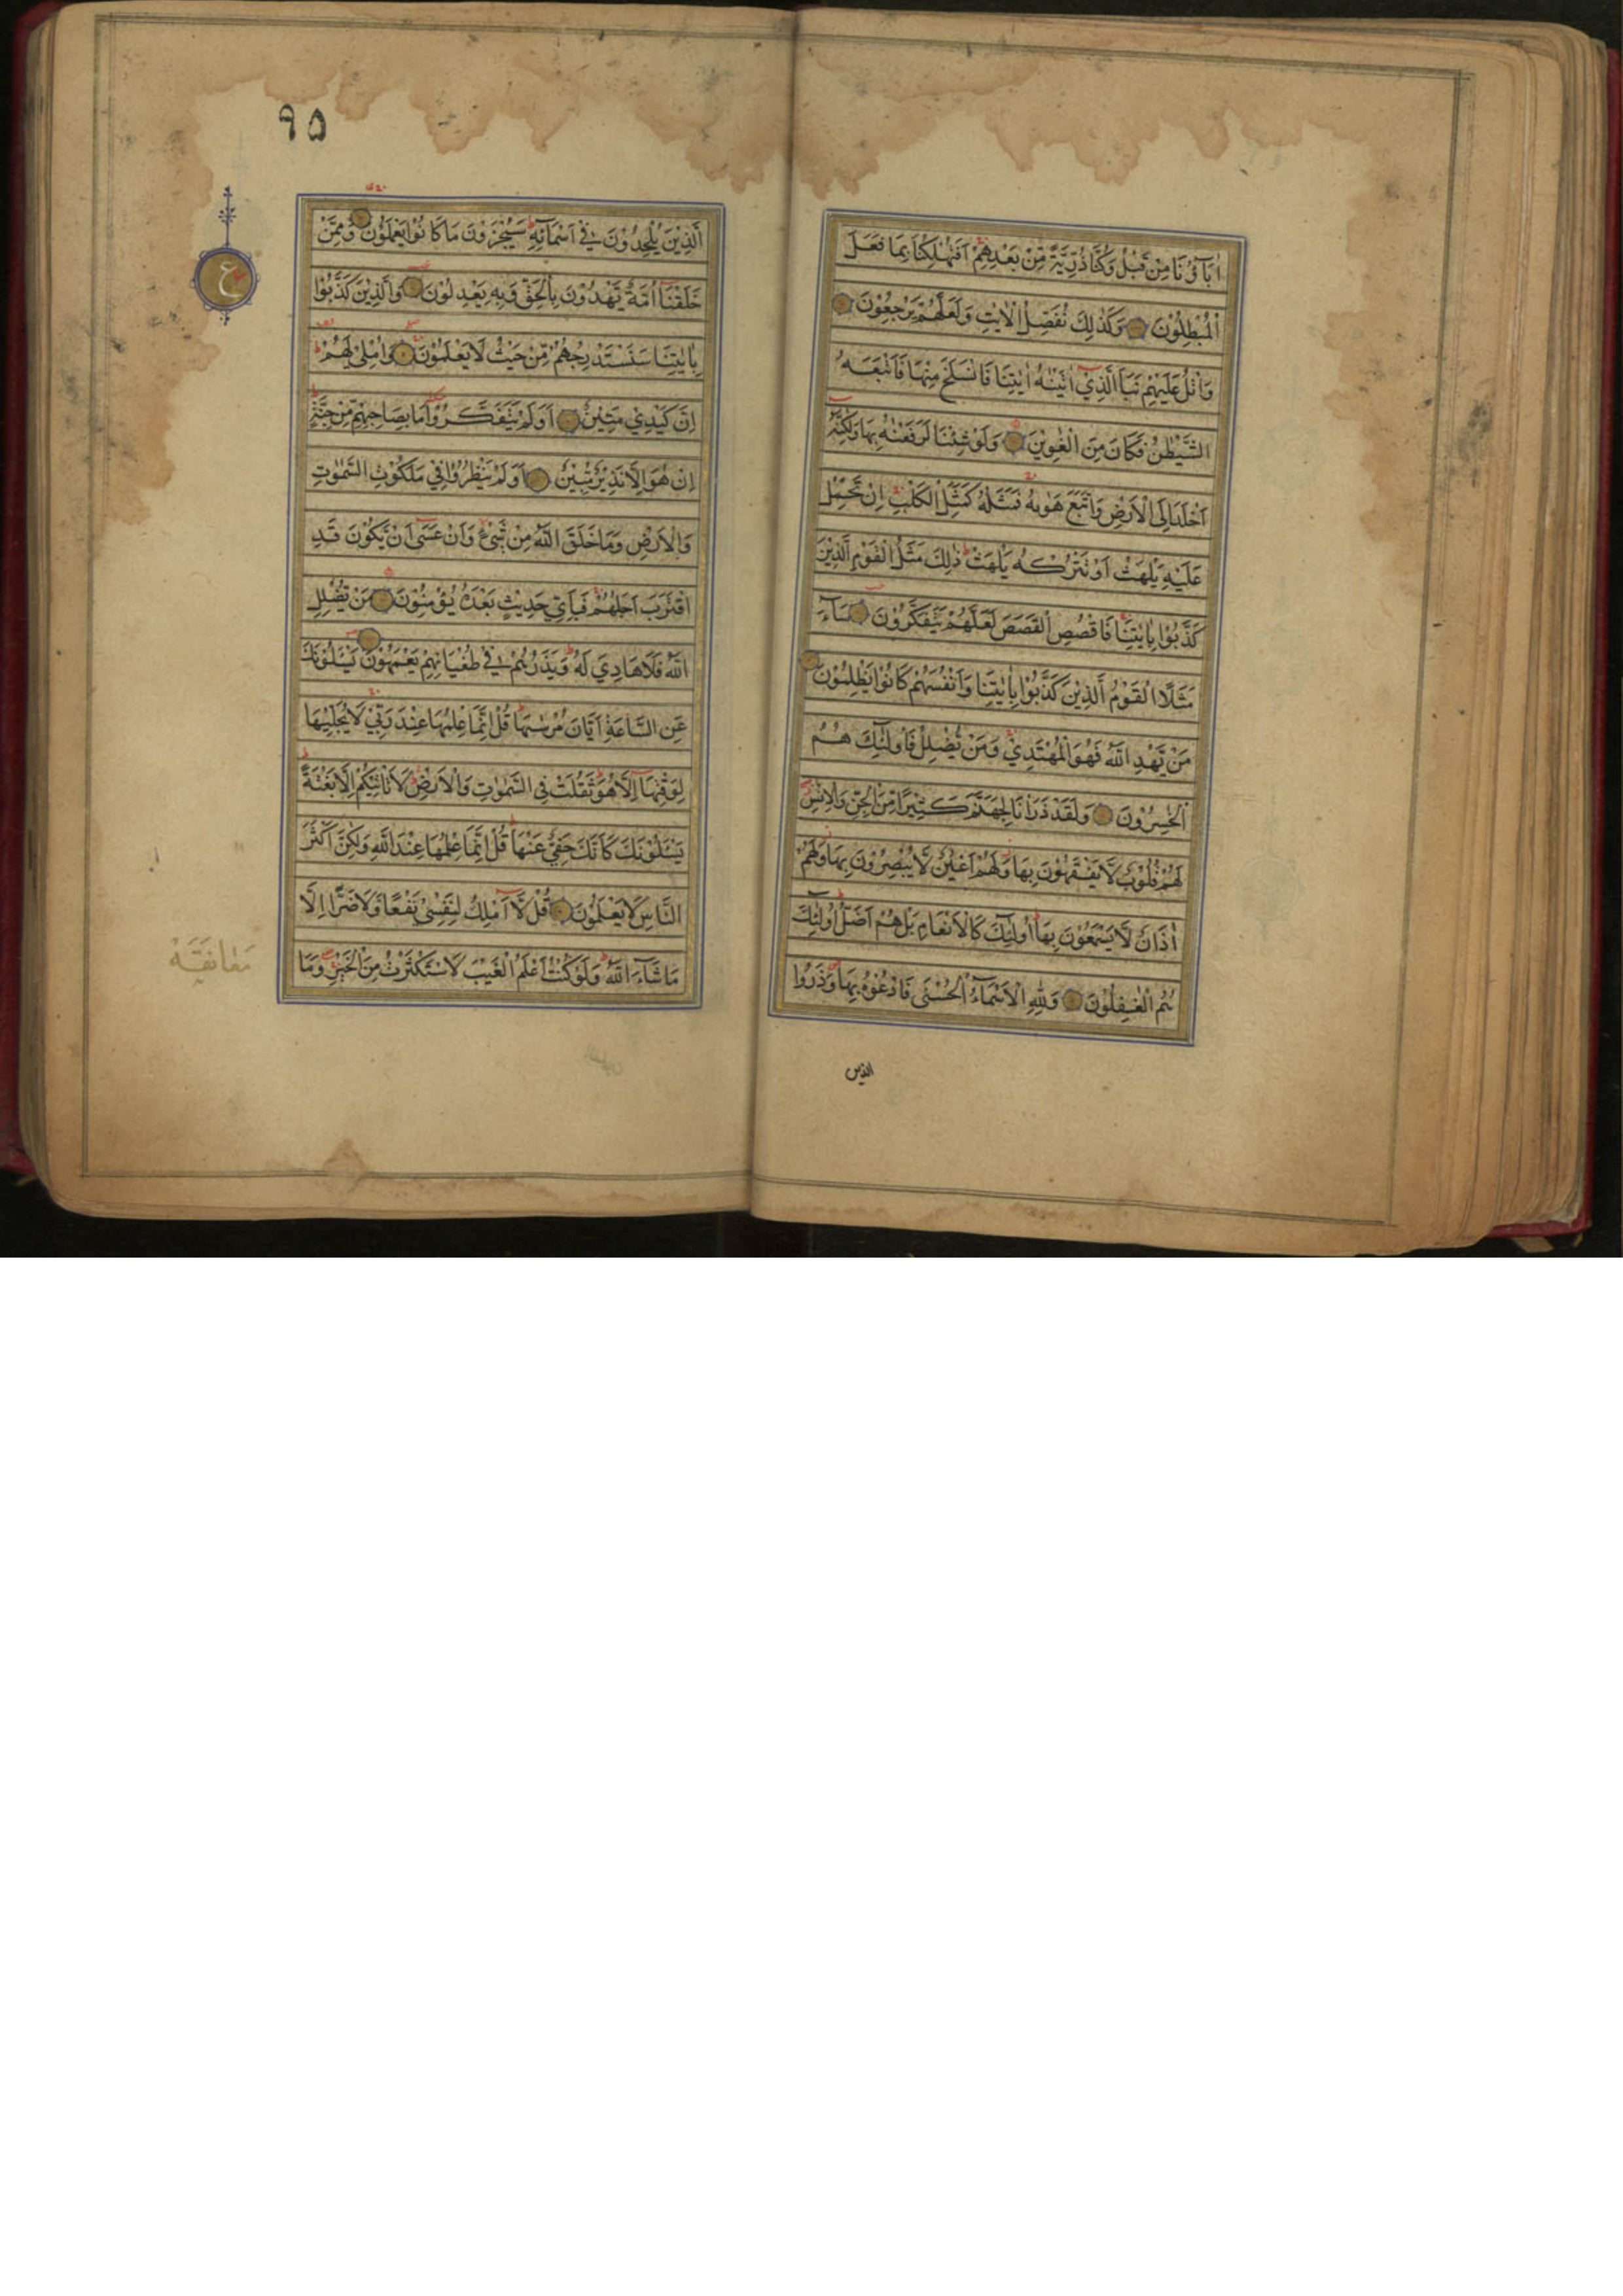 اٰبَآؤُنَا مِنْ قَبْلُ وَكُنَّا ذُرِّيَّةً مِّنْ بَعْدِهِمْ اَفَتُهْلِكُنَا بِمَا فَعَلَ
الْمُبْطِلُوْنَ وَكَذٰلِكَ نُفَصِّلُ الْاٰيٰتِ وَلَعَلَّهُمْ يَرْجِعُوْنَ
وَاتْلُ عَلَيْهِمْ نَبَاَ الَّذِيْٓ اٰتَيْنٰهُ اٰيٰتِنَا فَانْسَلَخَ مِنْهَا فَاَتْبَعَهُ
الشَّيْطٰنُ فَكَانَ مِنَ الْغٰوِيْنَ وَلَوْ شِئْنَا لَرَفَعْنٰهُ بِهَا وَلٰكِنَّهٗٓ
اَخْلَدَ اِلَى الْاَرْضِ وَاتَّبَعَ هَوٰىهُ فَمَثَلُهٗ كَمَثَلِ الْكَلْبِ اِنْ تَحْمِلْ
عَلَيْهِ يَلْهَثْ اَوْ تَتْرُكْهُ يَلْهَثْ ذٰلِكَ مَثَلُ الْقَوْمِ الَّذِيْنَ
كَذَّبُوْا بِاٰيٰتِنَا فَاقْصُصِ الْقَصَصَ لَعَلَّهُمْ يَتَفَكَّرُوْنَ سَآءَ
مَثَلًا الْقَوْمُ الَّذِيْنَ كَذَّبُوْا بِاٰيٰتِنَا وَاَنْفُسَهُمْ كَانُوْا يَظْلِمُوْنَ
مَنْ يَّهْدِ اللّٰهُ فَهُوَ الْمُهْتَدِيْ وَمَنْ يُّضْلِلْ فَاُولٰٓئِكَ هُمُ
الْخٰسِرُوْنَ وَلَقَدْ ذَرَاْنَا لِجَهَنَّمَ كَثِيْرًا مِّنَ الْجِنِّ وَالْاِنْسِ
لَهُمْ قُلُوْبٌ لَّا يَفْقَهُوْنَ بِهَا وَلَهُمْ اَعْيُنٌ لَّا يُبْصِرُوْنَ بِهَا وَلَهُمْ
اٰذَانٌ لَّا يَسْمَعُوْنَ بِهَا اُولٰٓئِكَ كَالْاَنْعَامِ بَلْ هُمْ اَضَلُّ اُولٰٓئِكَ
هُمُ الْغٰفِلُوْنَ وَلِلّٰهِ الْاَسْمَآءُ الْحُسْنٰى فَادْعُوْهُ بِهَا وَذَرُوا
الذين
٩٥
الَّذِيْنَ يُلْحِدُوْنَ فِيْٓ اَسْمَآئِهٖ سَيُجْزَوْنَ مَا كَانُوْا يَعْمَلُوْنَ وَمِمَّنْ
خَلَقْنَآ اُمَّةٌ يَّهْدُوْنَ بِالْحَقِّ وَبِهٖ يَعْدِلُوْنَ وَالَّذِيْنَ كَذَّبُوْا
بِاٰيٰتِنَا سَنَسْتَدْرِجُهُمْ مِّنْ حَيْثُ لَا يَعْلَمُوْنَ وَاُمْلِيْ لَهُمْ
اِنَّ كَيْدِيْ مَتِيْنٌ اَوَلَمْ يَتَفَكَّرُوْا مَا بِصَاحِبِهِمْ مِّنْ جِنَّةٍ
اِنْ هُوَ اِلَّا نَذِيْرٌ مُّبِيْنٌ اَوَلَمْ يَنْظُرُوْا فِيْ مَلَكُوْتِ السَّمٰوٰتِ
وَالْاَرْضِ وَمَا خَلَقَ اللّٰهُ مِنْ شَيْءٍ وَّاَنْ عَسٰٓى اَنْ يَّكُوْنَ قَدِ
اقْتَرَبَ اَجَلُهُمْ فَبِاَيِّ حَدِيْثٍ بَعْدَهٗ يُؤْمِنُوْنَ مَنْ يُّضْلِلِ
اللّٰهُ فَلَا هَادِيَ لَهٗ وَيَذَرُهُمْ فِيْ طُغْيَانِهِمْ يَعْمَهُوْنَ يَسْـَٔلُوْنَكَ
عَنِ السَّاعَةِ اَيَّانَ مُرْسٰىهَا قُلْ اِنَّمَا عِلْمُهَا عِنْدَ رَبِّيْ لَا يُجَلِّيْهَا
لِوَقْتِهَآ اِلَّا هُوَ ثَقُلَتْ فِي السَّمٰوٰتِ وَالْاَرْضِ لَا تَاْتِيْكُمْ اِلَّا بَغْتَةً
يَسْـَٔلُوْنَكَ كَاَنَّكَ حَفِيٌّ عَنْهَا قُلْ اِنَّمَا عِلْمُهَا عِنْدَ اللّٰهِ وَلٰكِنَّ اَكْثَرَ
النَّاسِ لَا يَعْلَمُوْنَ قُلْ لَّآ اَمْلِكُ لِنَفْسِيْ نَفْعًا وَّلَا ضَرًّا اِلَّا
مَا شَآءَ اللّٰهُ وَلَوْ كُنْتُ اَعْلَمُ الْغَيْبَ لَاسْتَكْثَرْتُ مِنَ الْخَيْرِ وَمَا
ع
مَعَانَقَة